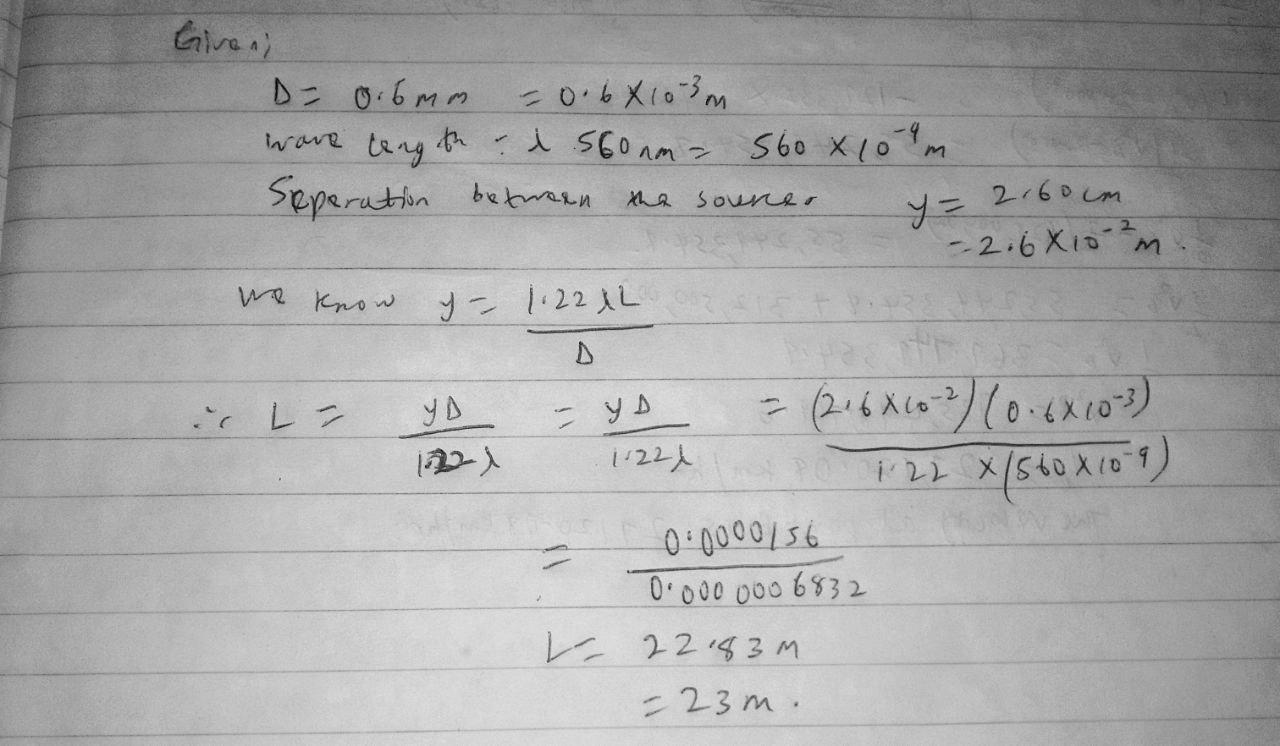 Given;
D = 0.6 mm = 0.6 X 10^-3 m
wave length = λ 560 nm = 560 X 10^-9 m
Seperation between the sources y = 2.60 cm
= 2.6 X 10^-2 m.
we know y = 1.22 λL / D
∴ L = yD / 1.22 λ = yD / 1.22 λ = (2.6 X 10^-2) (0.6 X 10^-3) / 1.22 X (560 X 10^-9)
= 0.0000156 / 0.0000006832
L = 22.83 m
= 23 m.